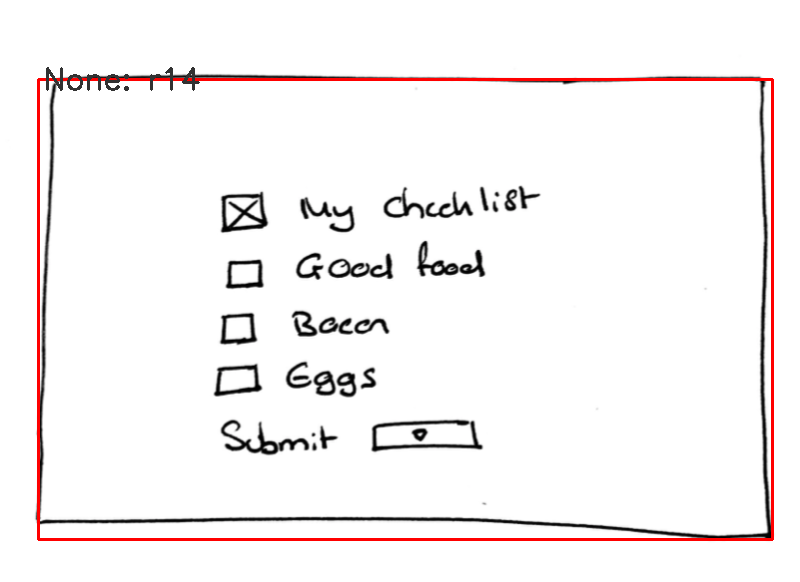 None: r14
My checklist
Good food
Bacon
Eggs
Submit